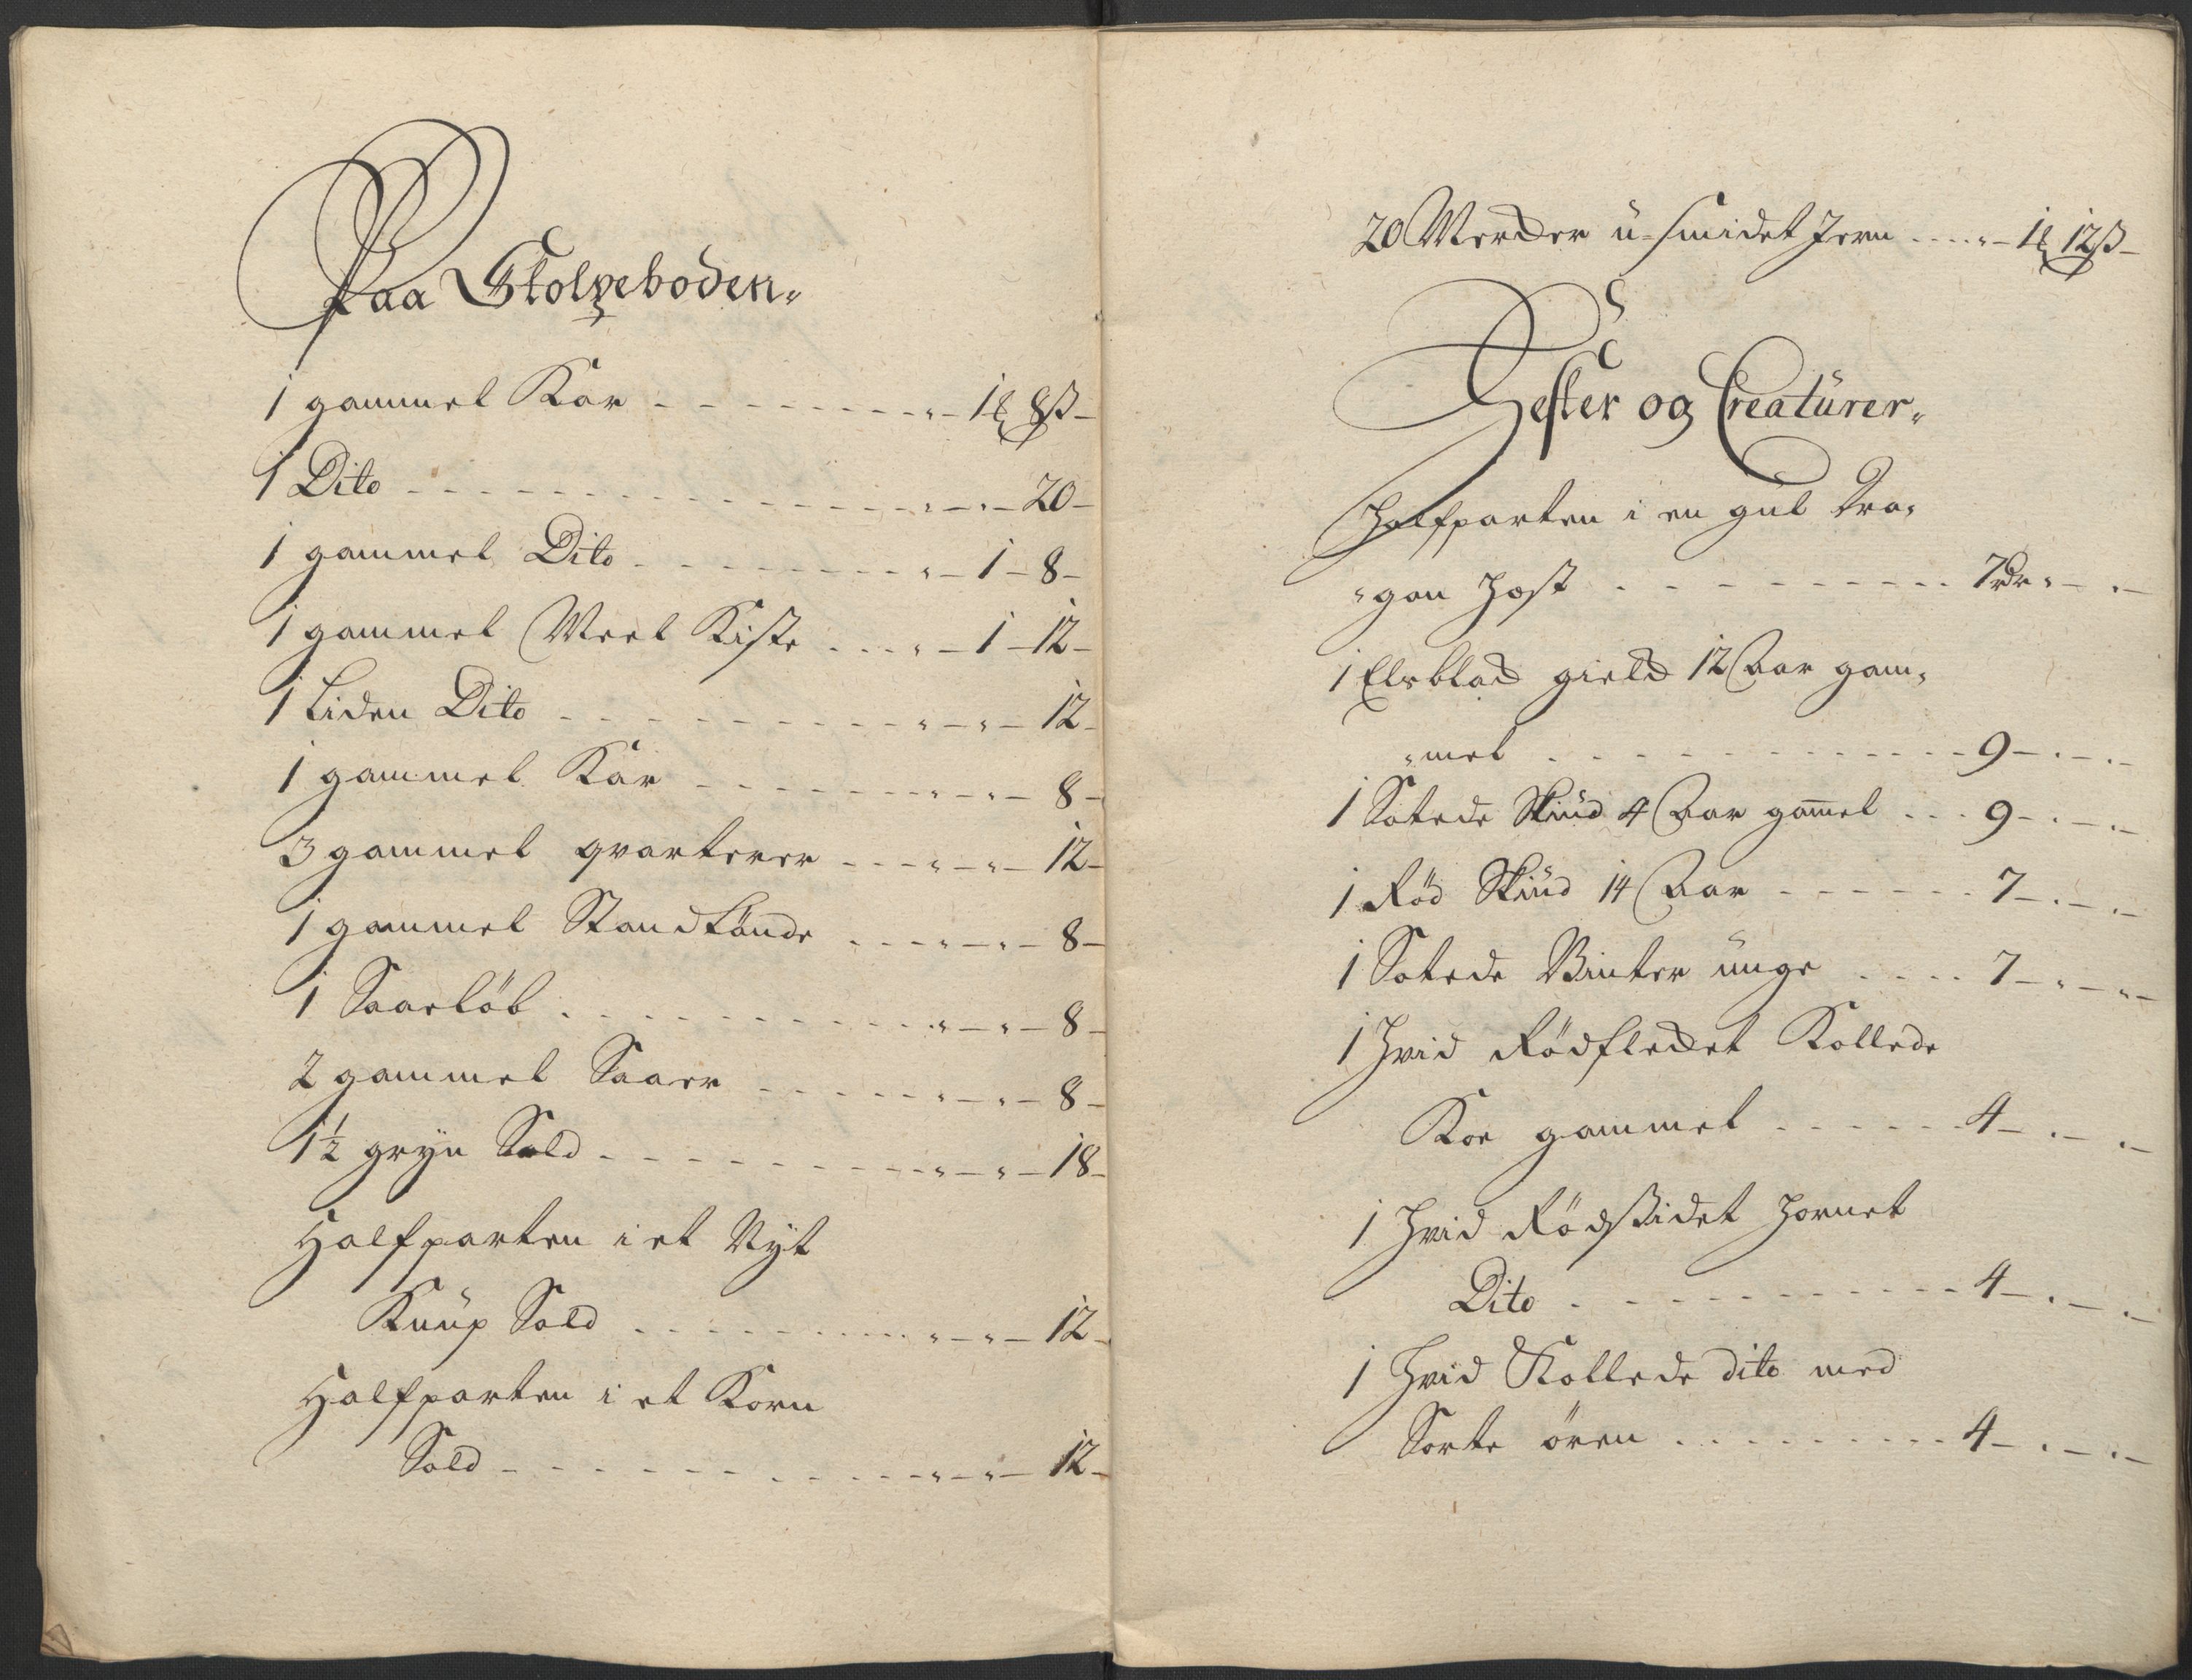 Paa Stolpeboden„
1 gammel Kar - - - - - „ - 1 ℔ 8ß -
1 Dito - - - - - „ - „ - 20 -
1 gammel Dito - - - - - „ - 1 - 8 -
1 gammel Meel Kiste - - - „ - 1 - 12 -
1 Liden Dito - - - - - „ - „ - 12 -
1 gammel Kar - - - - - „ - „ - 8 -
3 gammel qvarterer - - - „ - „ - 12 -
1 gammel Standtönde - - - „ - „ - 8 -
1 Saaeløb - - - - - „ - „ - 8 -
2 gammel Saaer - - - - - „ - „ - 8 -
1½ gryn Sold - - - - - „ - „ - 18 -
Halfparten i et Nÿt
Knüp Sold - - - - - „ - „ - 12 -
Halfparten i et Korn
Sold - - - - - „ - „ - 12 -
20 Merker ü-smidet Jern - - - „ - 1 ℔ 12ß -
Hester og Creatürer„
Halfparten i en gul Dra„
„gon Hest - - - - - 7 Rdr „ - „ -
1 Elsblad gield 12 Aar gam„
„mel - - - - - 9 - „ - „ -
1 Sotede Skiud 4 Aar gam̄el - - - 9 - „ - „ -
1 Rød Skiud 14 Aar - - - - - 7 - „ - „ -
1 Sotede Vinter unge - - - - 7 - „ - „ -
1 Hvid Rødflecket Kollede
Koe gammel - - - - - 4 - „ - „ -
1 Hvid Rødsidet Hornet
Dito - - - - - 4 - „ - „ -
1 Hvid Kollede dito med
Sorte ören - - - - - 4 - „ - „ -